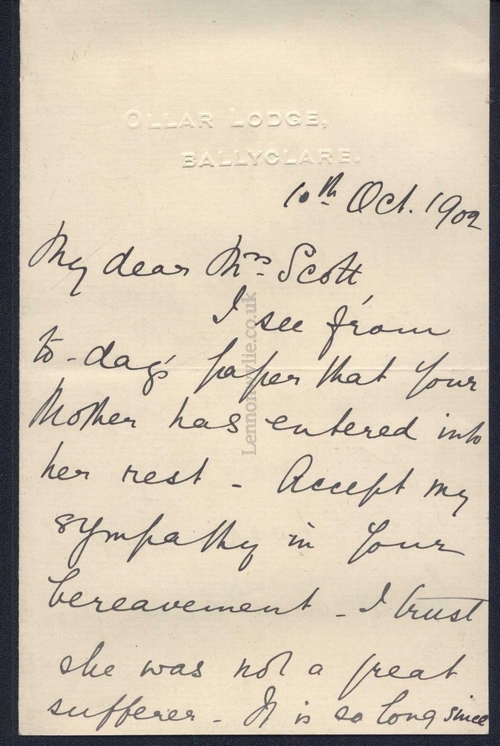 OLLAR LODGE,
BALLYCLARE.
10th Oct. 1902
My dear Mrs. Scott
I see from
to-day's paper that your
Mother has entered into
her rest - Accept my
sympathy in your
bereavement - I trust
she was not a great
sufferer - It is so long since
Lennonwylie.co.uk